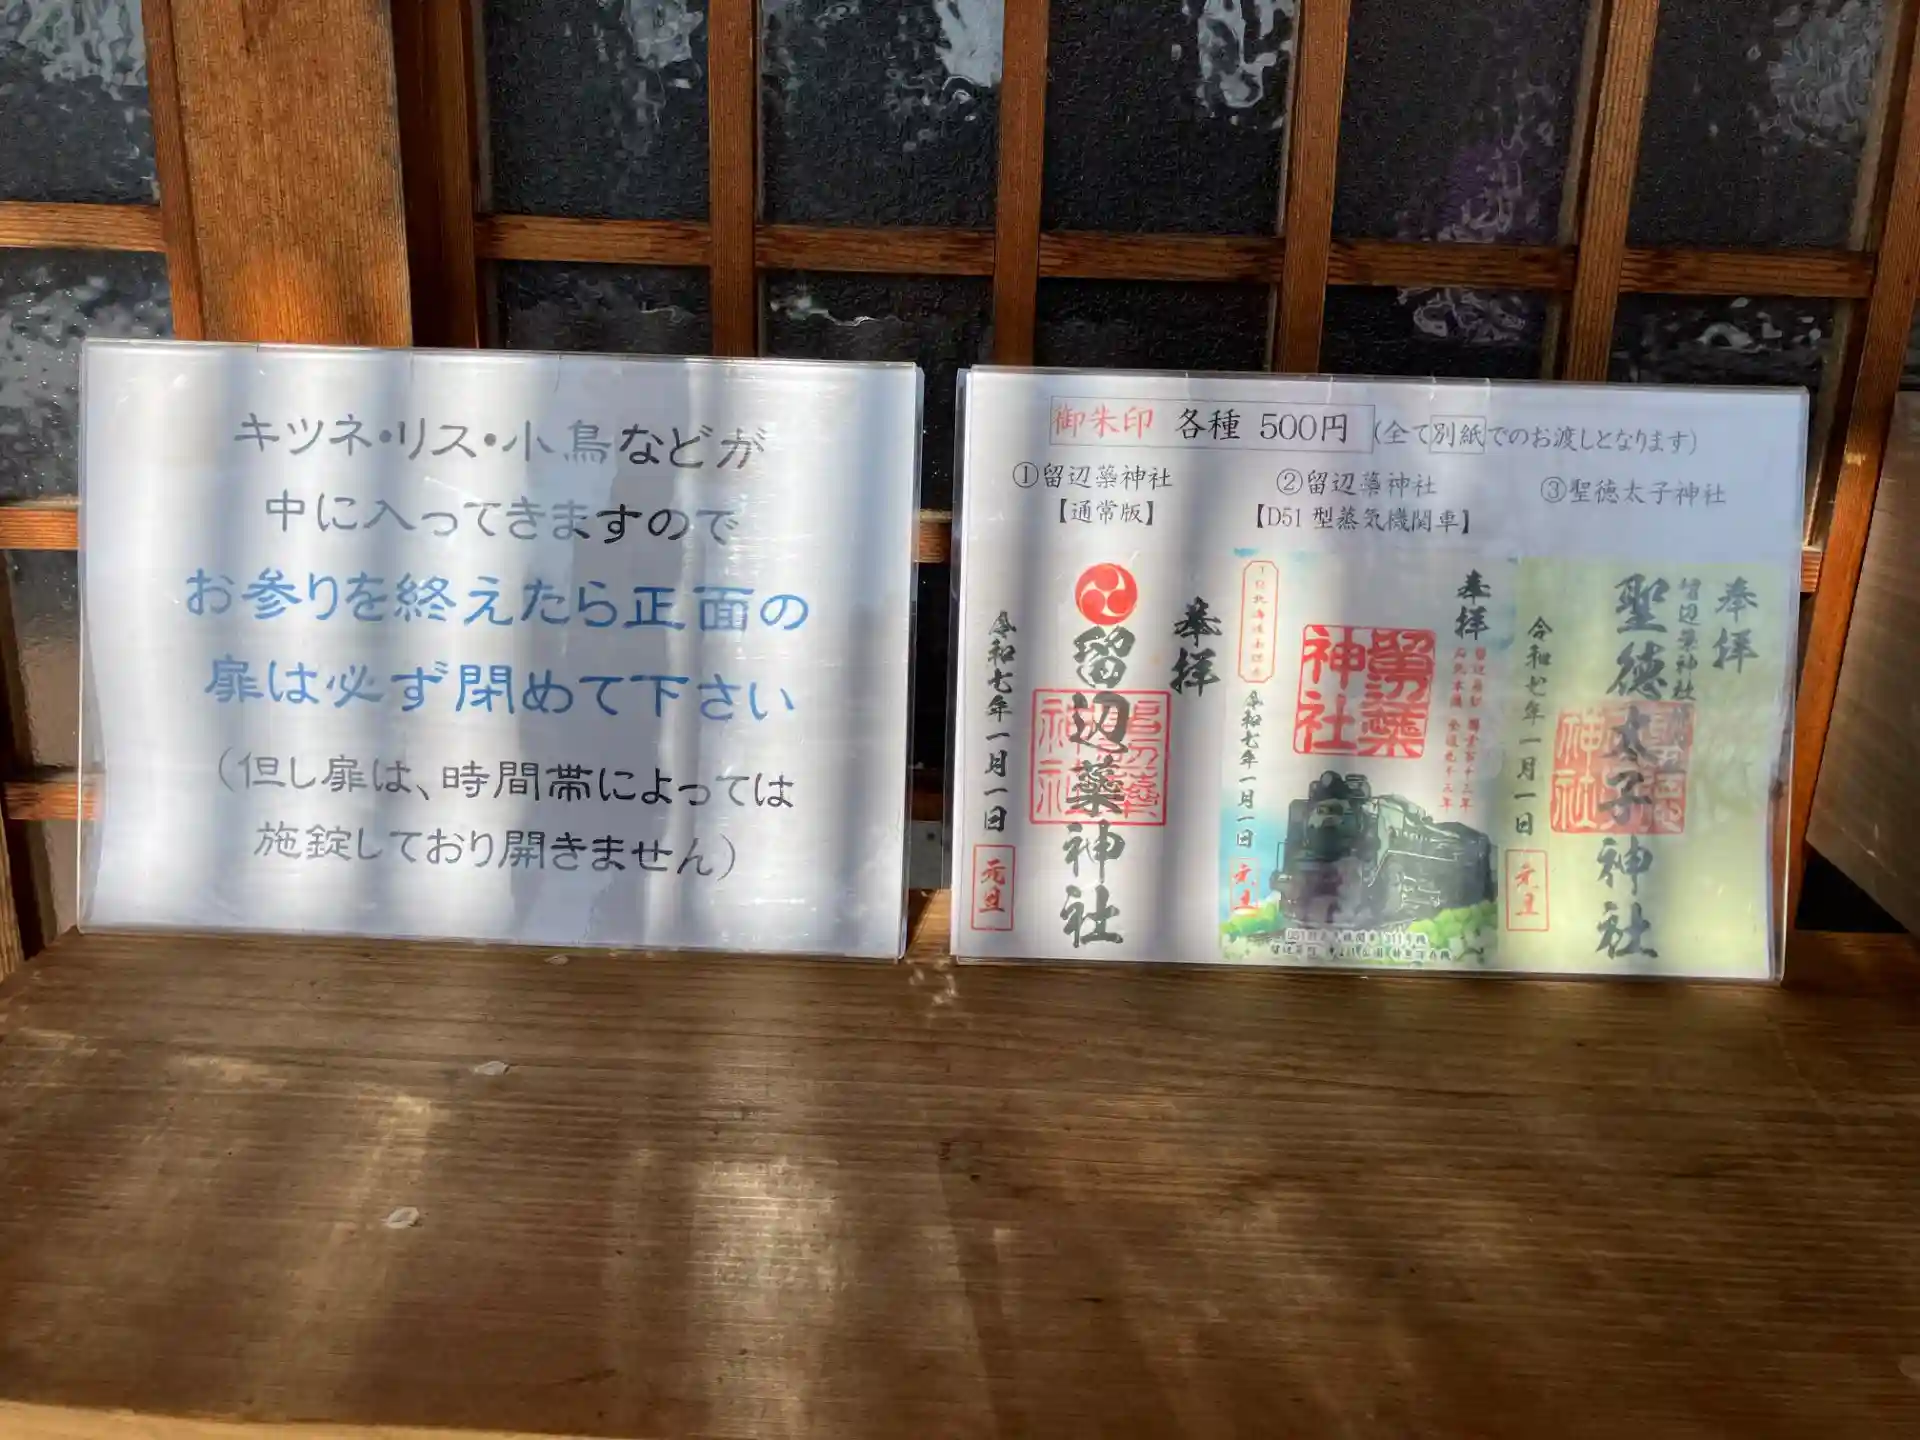 キツネ・リス・小鳥などが
中に入ってきますので
お参りを終えたら正面の
扉は必ず閉めて下さい
（但し扉は、時間帯によっては
施錠しており開きません）
御朱印 各種 500円 (全て別紙でのお渡しとなります)
①留辺蘂神社
【通常版】
奉拝
留辺蘂神社
令和七年一月一日
元旦
②留辺蘂神社
【D51 型蒸気機関車】
奉拝
留辺蘂神社
令和七年一月一日
元旦
③聖徳太子神社
奉拝
留辺蘂神社
聖徳太子神社
令和七年一月一日
元旦